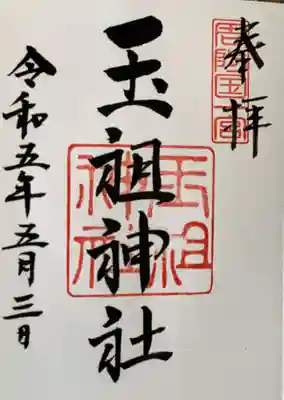 奉拝
周防国一宮
玉祖神社
玉祖神社
令和五年五月三日